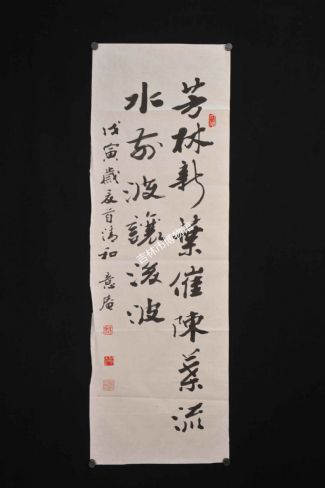 芳林新葉催陳葉流
水前波讓後波
戊寅歲夏首清和 意庵
吉林市博物馆